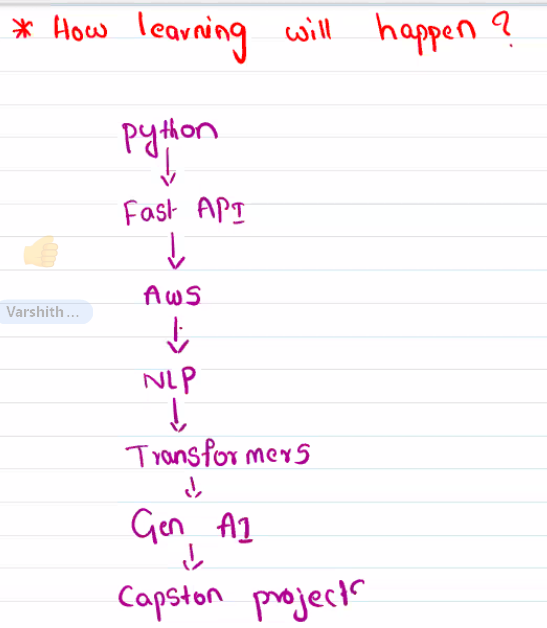 * How learning will happen?
python
Fast API
Varshith ...
AWS
NLP
Transformers
Gen AI
Capston projects